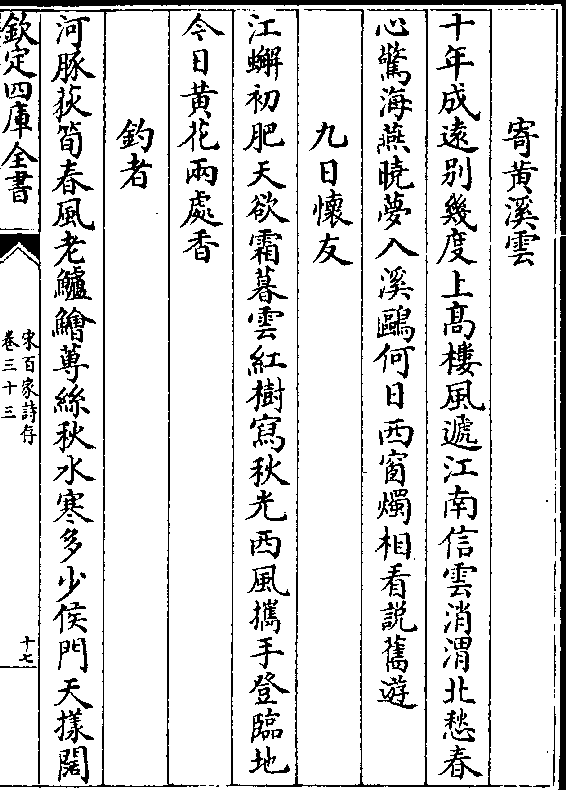 寄黄溪雲
十年成逺别幾度上髙樓風遞江南信雲消渭北愁春
心驚海燕曉夢入溪鷗何日西窗燭相看説舊遊
九日懷友
江蠏初肥天欲霜暮雲紅樹寫秋光西風攜手登臨地
今日黄花兩處香
釣者
河豚荻筍春風老鱸鱠蓴絲秋水寒多少侯門天樣闊
欽定四庫全書
宋百家詩存
卷三十三
十七